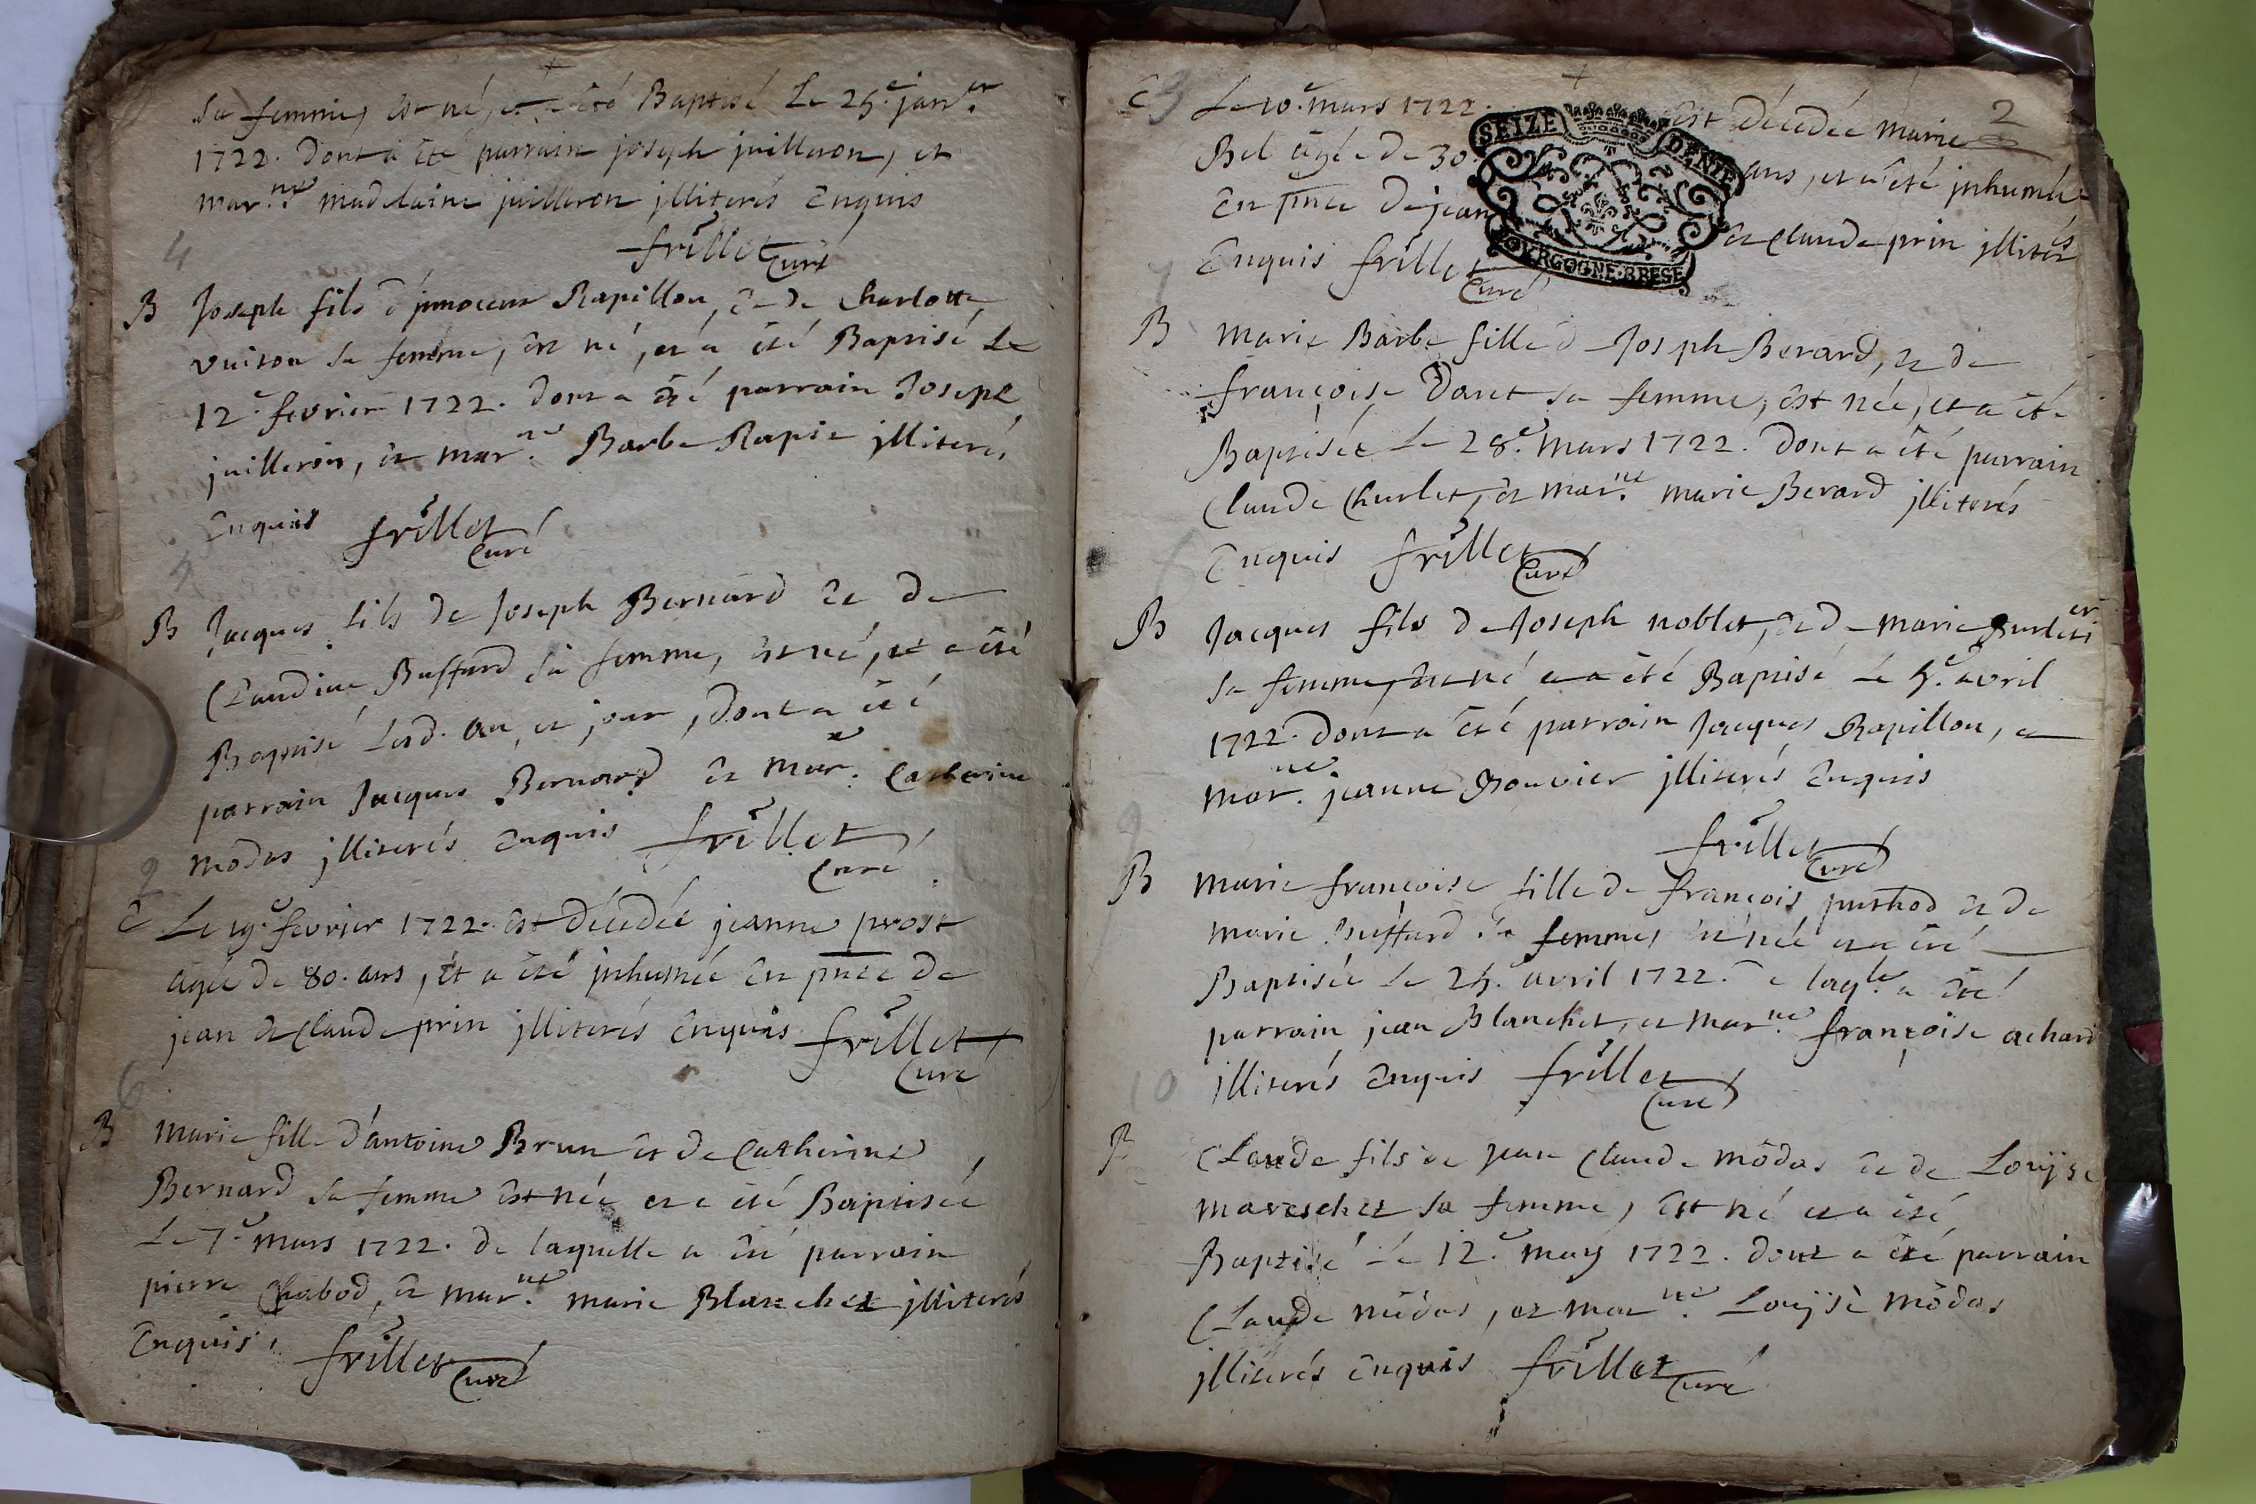 sa femme, est né, et a été Baptisé Le 25.e janer.
1722. Dont a été parrain joseph juilleron, et
marne. madelaine juilleron jlliterés Enquis
frillet Curé
4
B Joseph fils d'jnnocent Rapillon, & de Charlotte
vuiron sa femme, est né, et a été Baptisé Le
12.e fevrier 1722. dont a été parrain Joseph
juilleron, et marne. Barbe Rapie jlliterés
Enquis frillet Curé
5
B Jacques fils de Joseph Bernard et de
Claudine Buffard sa femme, est né, et a été
Baptisé Lesd. an, et jour, dont a été
parrain Jacques Bernard et mar. Catherine
modas jlliterés Enquis frillet Curé
2
E Le 19.e fevrier 1722. est décedée jeanne prost
agée de 80. ans, et a été jnhumée En pnce de
jean et Claude prin jlliterés Enquis frillet Curé
6
B Marie fille d'antoine Brun et de Catherine
Bernard sa femme est née et a été Baptisée
Le 7.e mars 1722. de laquelle a été parrain
pierre Chabod, et marne. marie Blanchet jlliterés
Enquis, frillet Curé
2
E 3 Le 10.e mars 1722. est décedée marie
Bel agée de 30. ans, et a été jnhumée
En pnce de jean et Claude prin jlliterés
Enquis frillet Curé
SEIZE DENIE
BOURGOGNE·BRESE
7
B Marie Barbe fille d Joseph Berard, et de
françoise Daret sa femme, est née, et a été
Baptisée Le 28.e mars 1722. Dont a été parrain
Claude Churlet, et marne. marie Berard jlliterés
Enquis frillet Curé
B Jacques fils de Joseph noblet, et de marie
sa femme, est né et a été Baptisé Le 5.e avril
1722. Dont a été parrain Jacques Rapillon, et
marne. jeanne Bouvier jlliterés Enquis
frillet Curé
9
B Marie françoise fille de françois puthod et de
Marie Buffard sa femme, est née et a été
Baptisée Le 25. avril 1722. De laqle. a été
parrain jean Blanchet, et marne. françoise achard
jlliterés Enquis frillet Curé
10
B Claude fils de jean Claude môdas et de Louijse
mareschet sa femme, est né et a été
Baptisé Le 12.e may 1722. dont a été parrain
Claude môdas, et marne. Louijse môdas
jlliterés Enquis frillet Curé